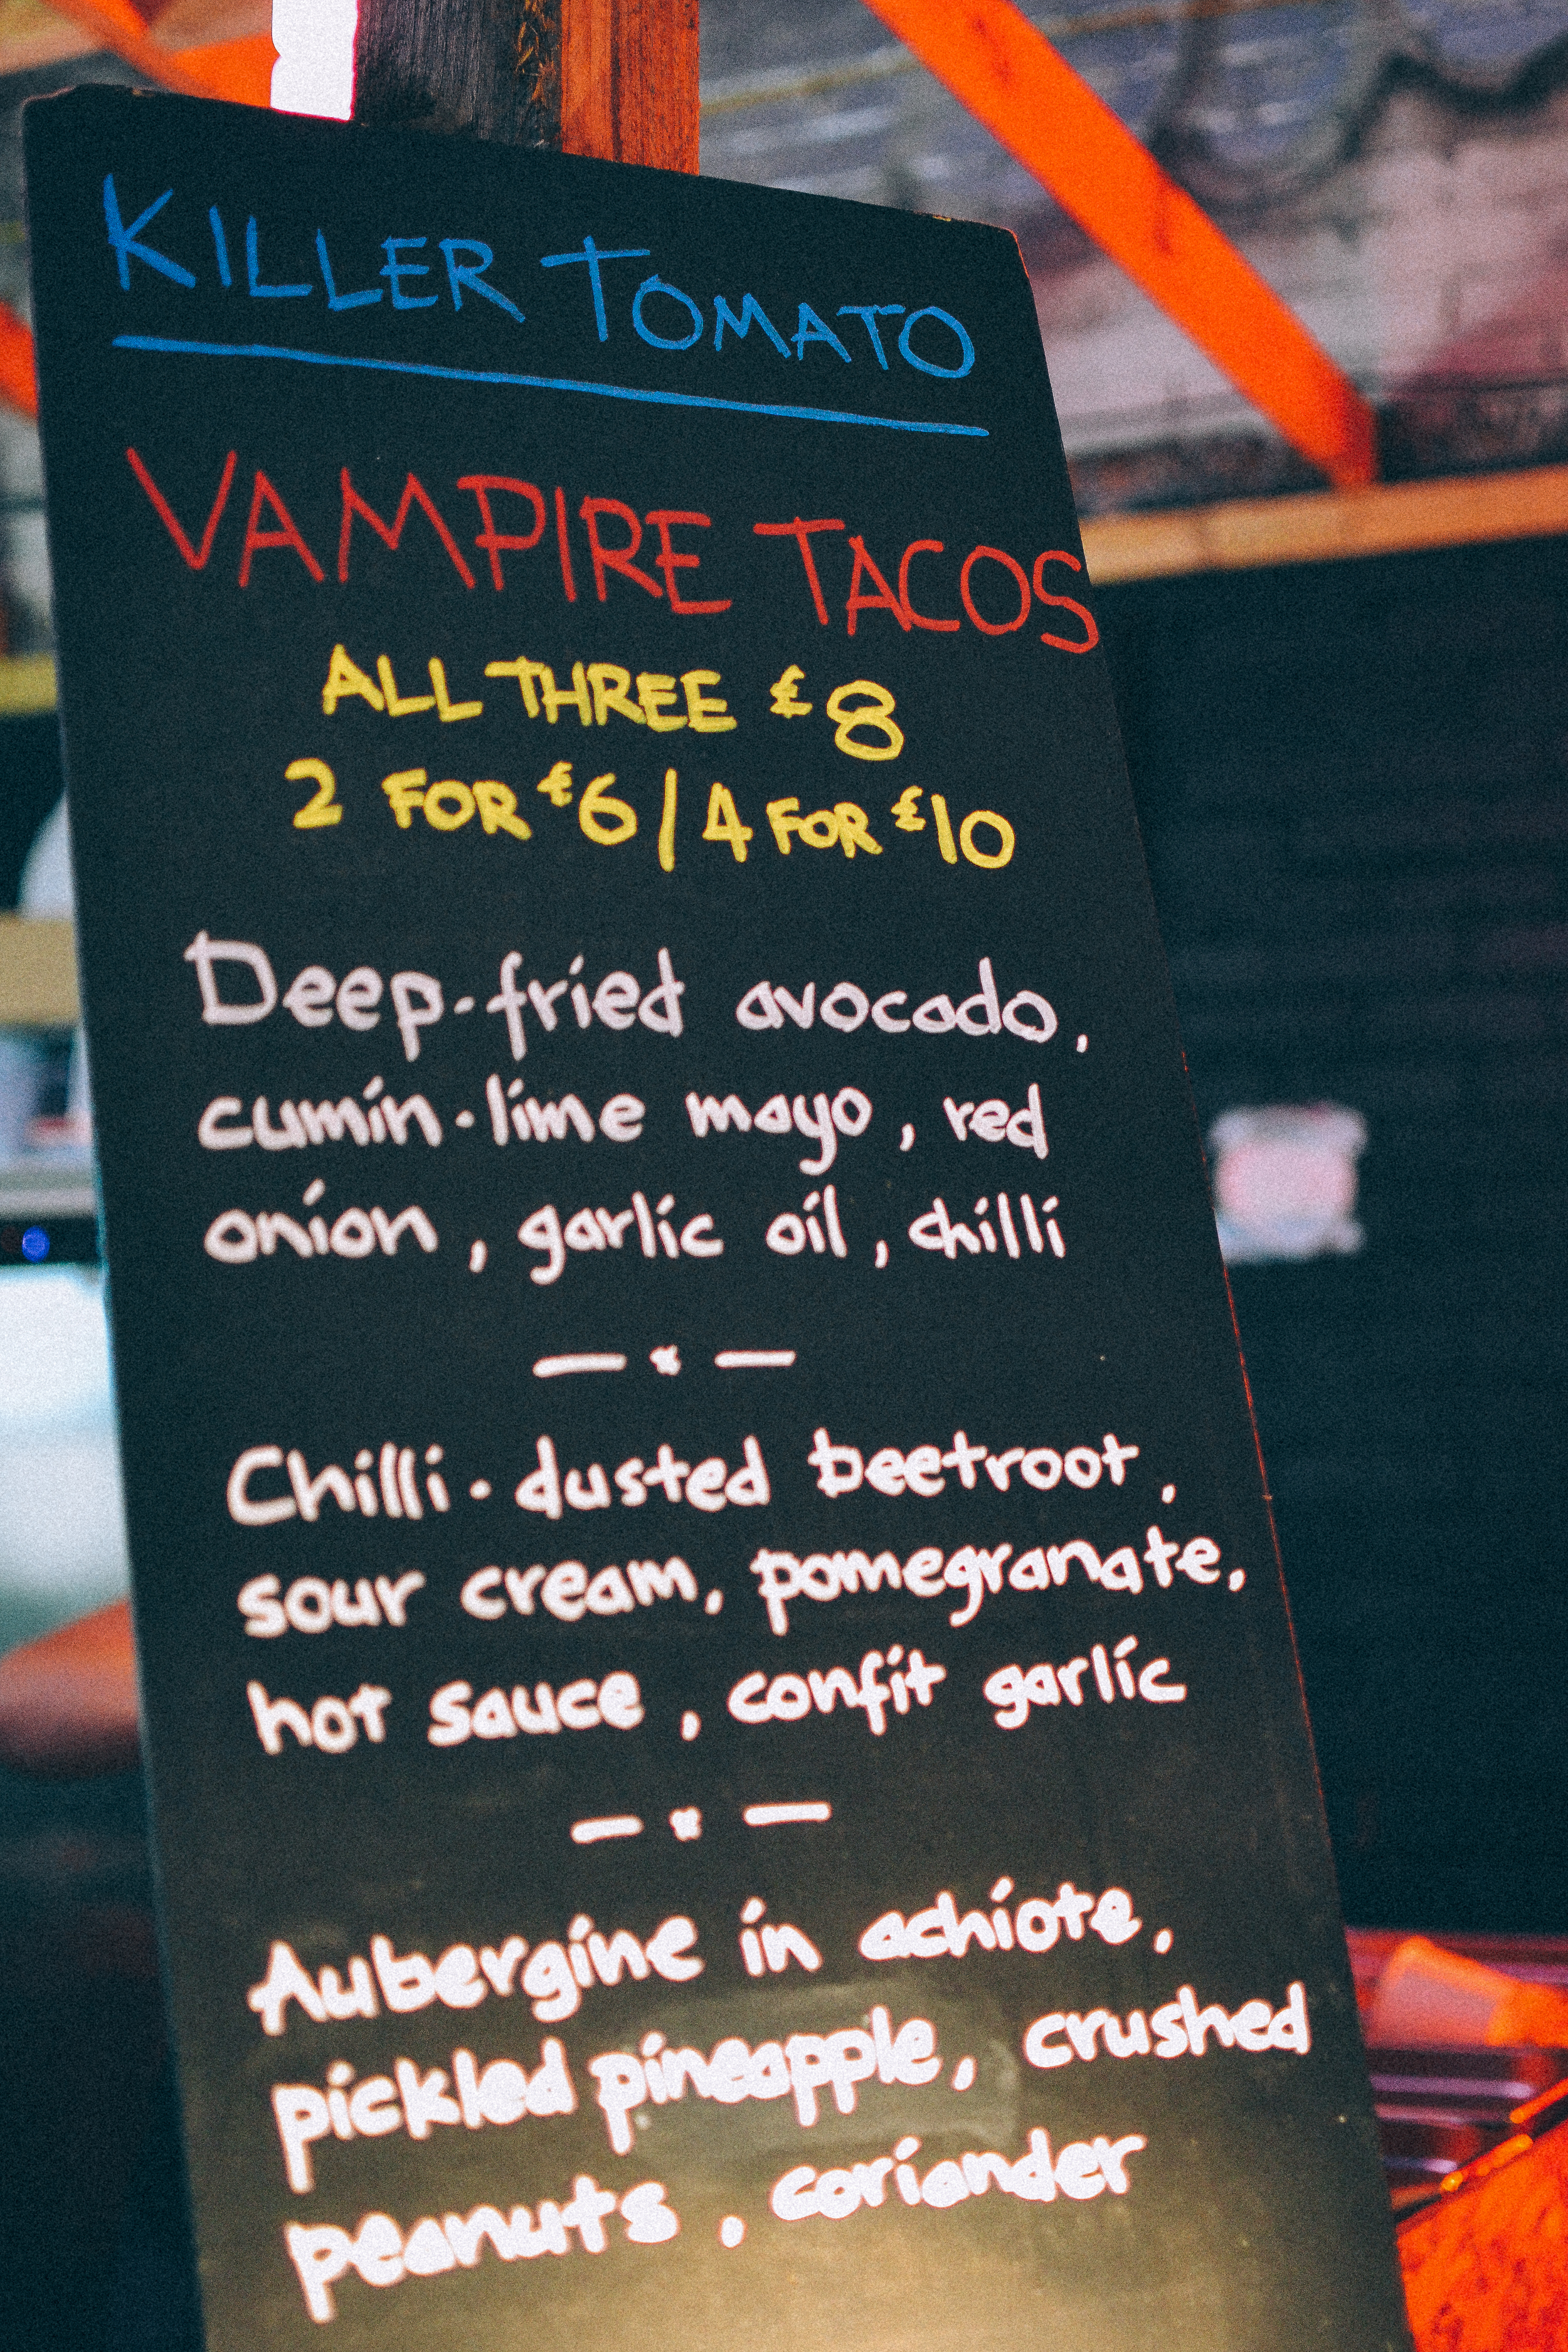 KILLER TOMATO
VAMPIRE TACOS
ALL THREE £8
2 FOR £6 / 4 FOR £10
Deep-fried avocado,
cumin-lime mayo, red
onion, garlic oil, chilli
Chilli-dusted beetroot,
sour cream, pomegranate,
hot sauce, confit garlic
Aubergine in achiote,
pickled pineapple, crushed
peanuts, coriander